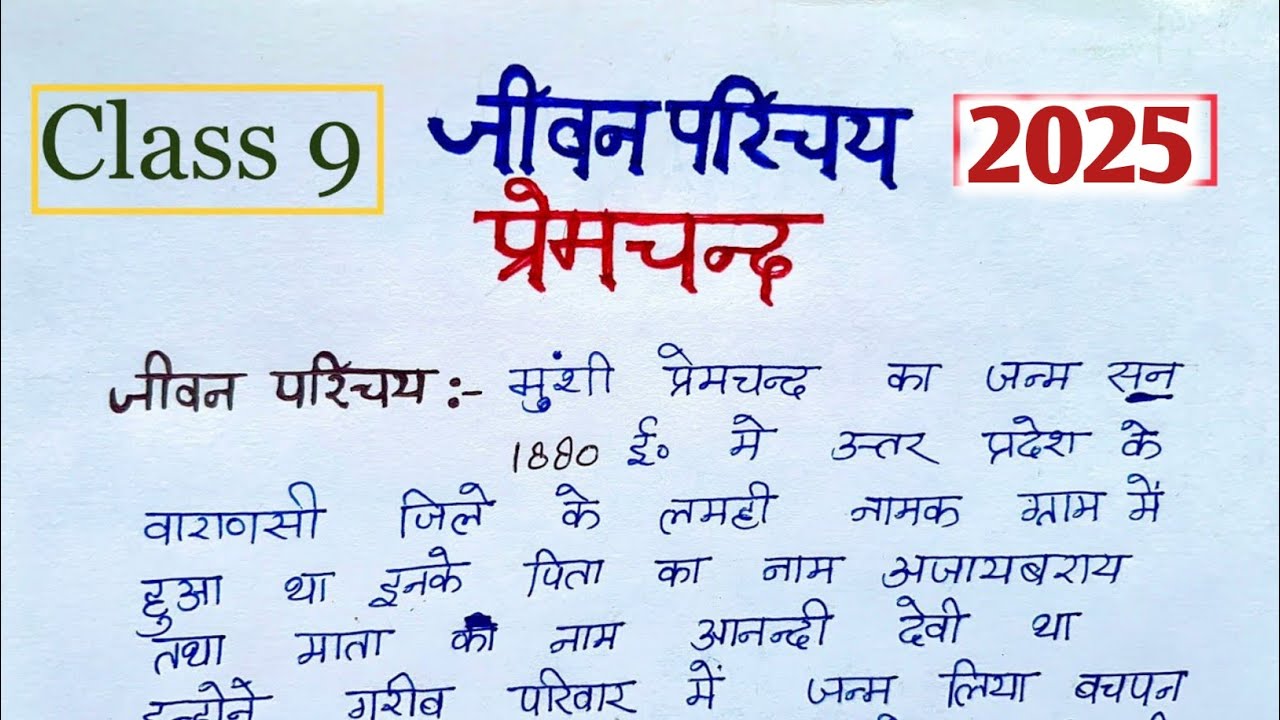 Class 9
जीवन परिचय
2025
प्रेमचन्द
जीवन परिचय :- मुंशी प्रेमचन्द का जन्म सन
1880 ई० मे उत्तर प्रदेश के
वाराणसी जिले के लमही नामक ग्राम में
हुआ था इनके पिता का नाम अजायबराय
तथा माता का नाम आनन्दी देवी था
इन्होने गरीब परिवार में जन्म लिया बचपन